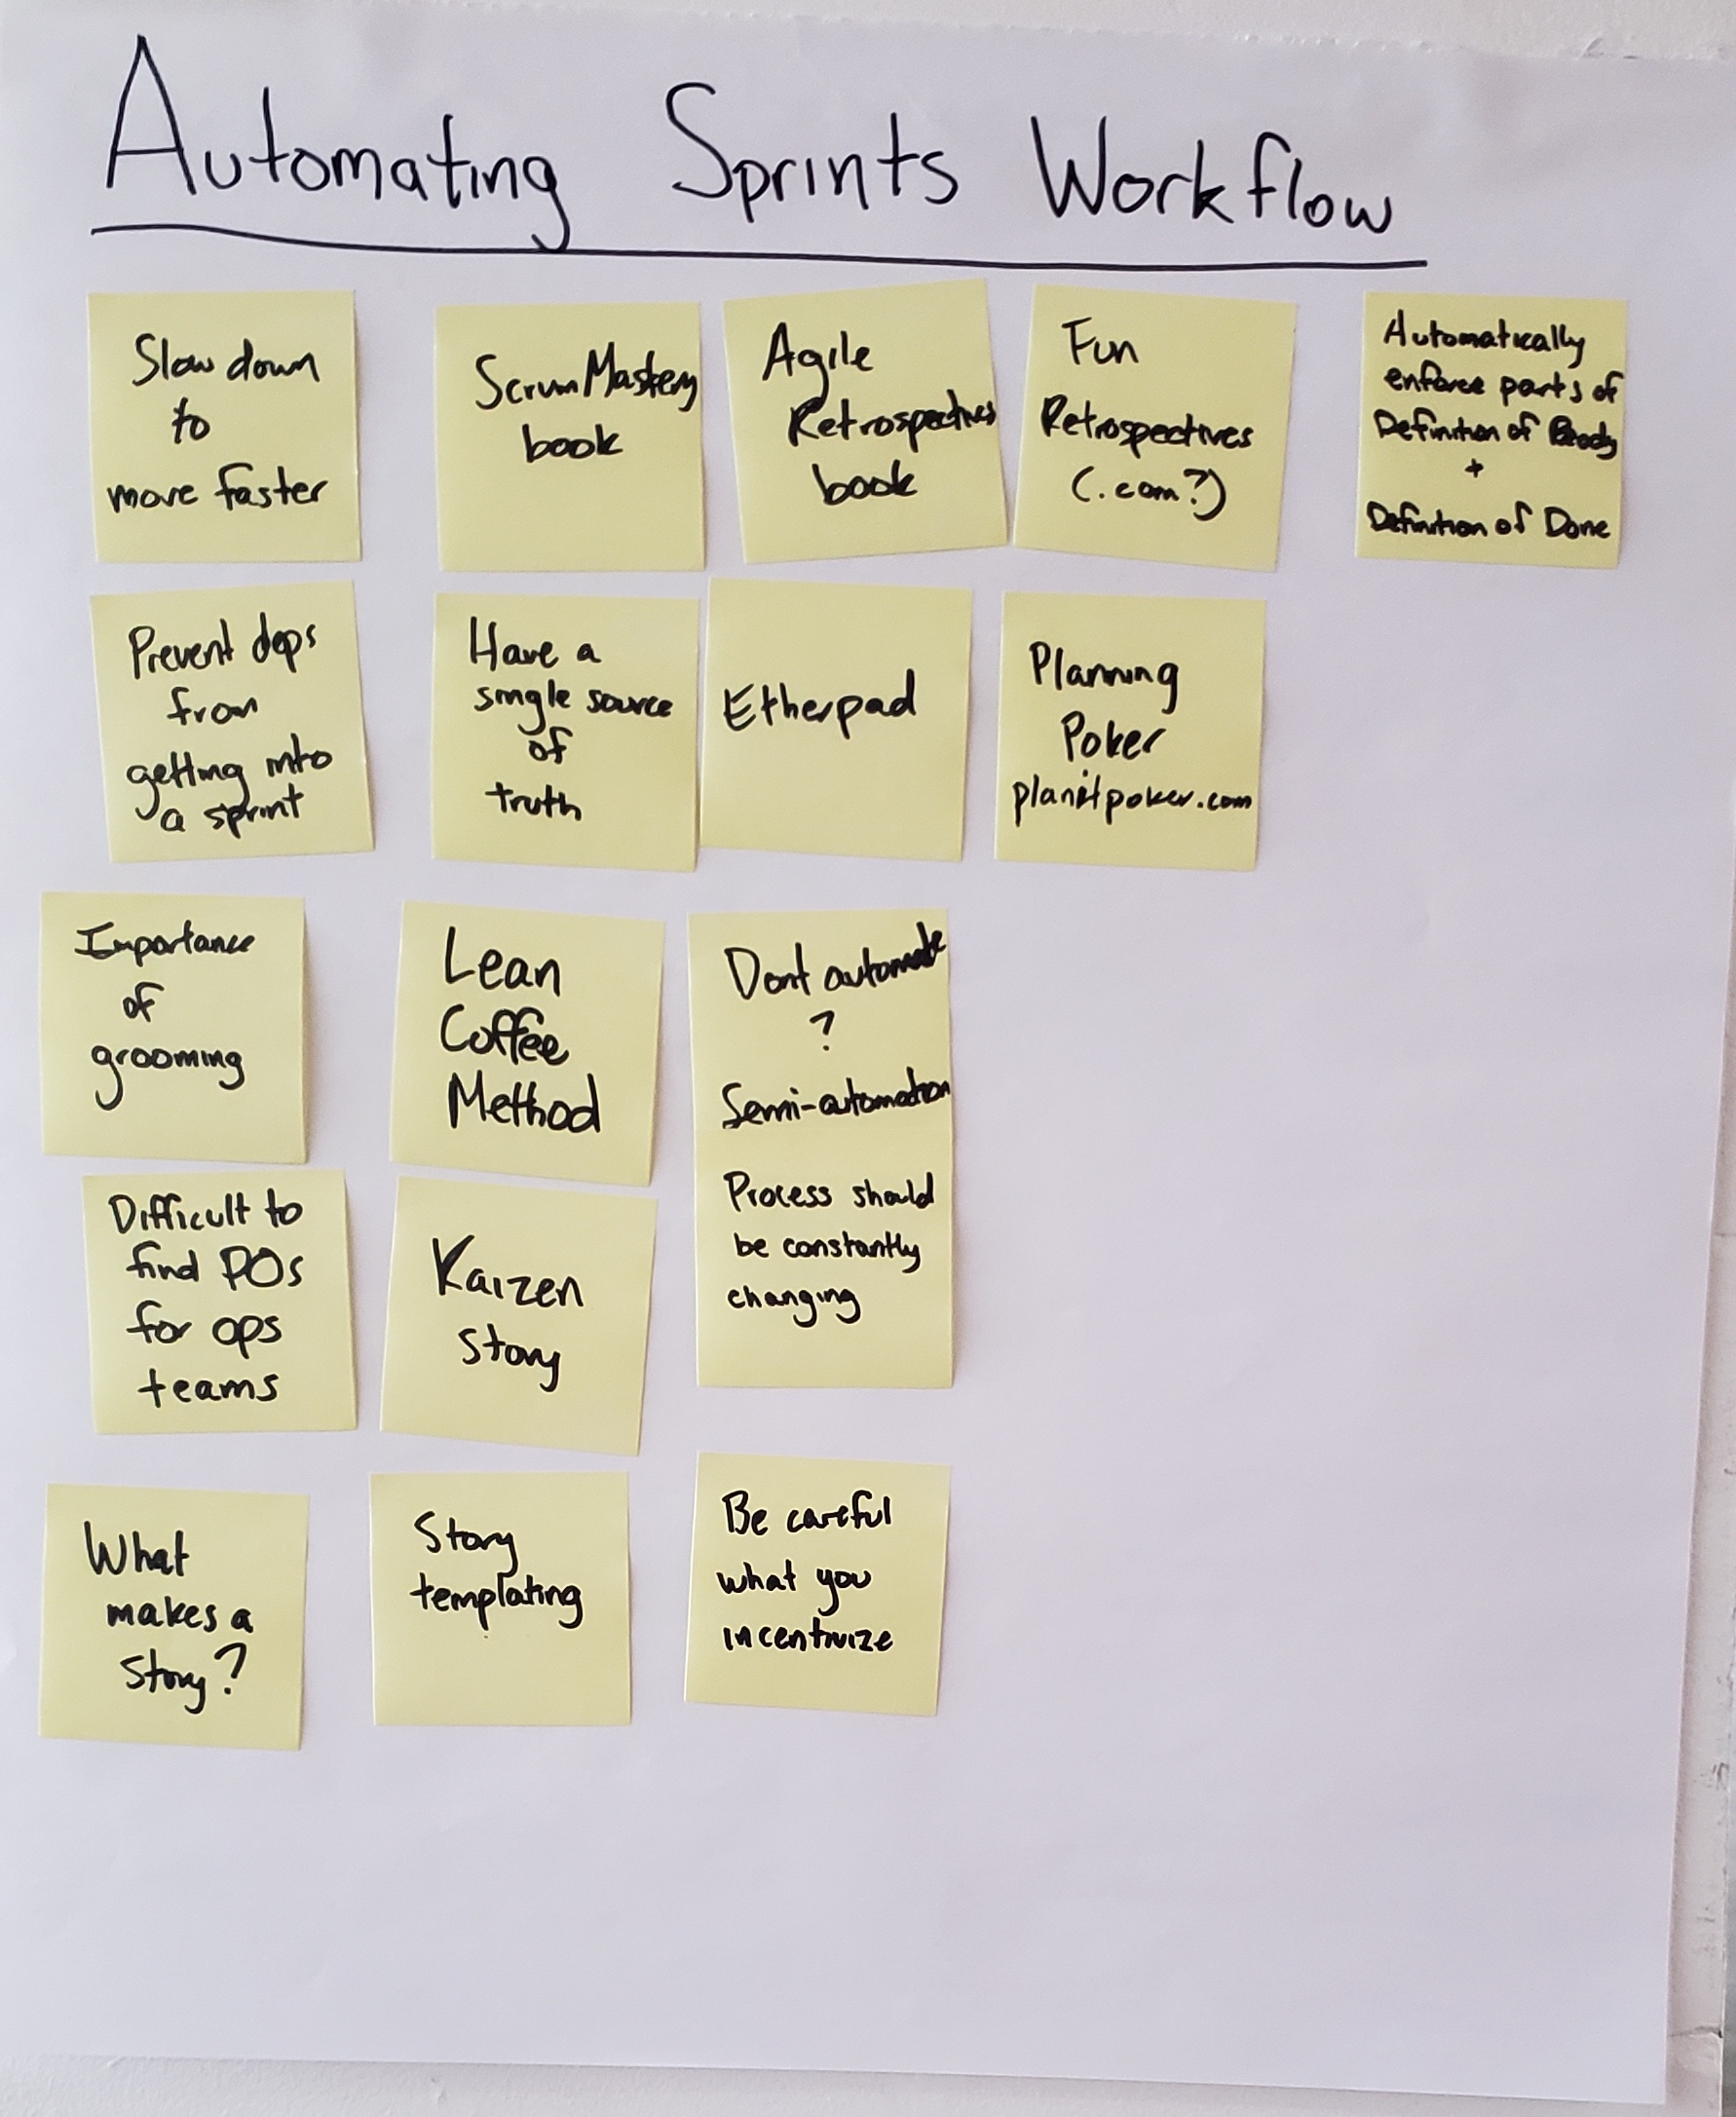 Automating Sprints Workflow
Slow down
to
move faster
Scrum Mastery
book
Agile
Retrospectives
book
Fun
Retrospectives
(.com?)
Automatically
enforce parts of
Definition of Ready
+
Definition of Done
Prevent deps
from
getting into
a sprint
Have a
single source
of
truth
Etherpad
Planning
Poker
planitpoker.com
Importance
of
grooming
Lean
Coffee
Method
Dont automate
?
Semi-automation
Process should
be constantly
changing
Difficult to
find POs
for ops
teams
Kaizen
story
What
makes a
story?
Story
templating
Be careful
what you
incentivize